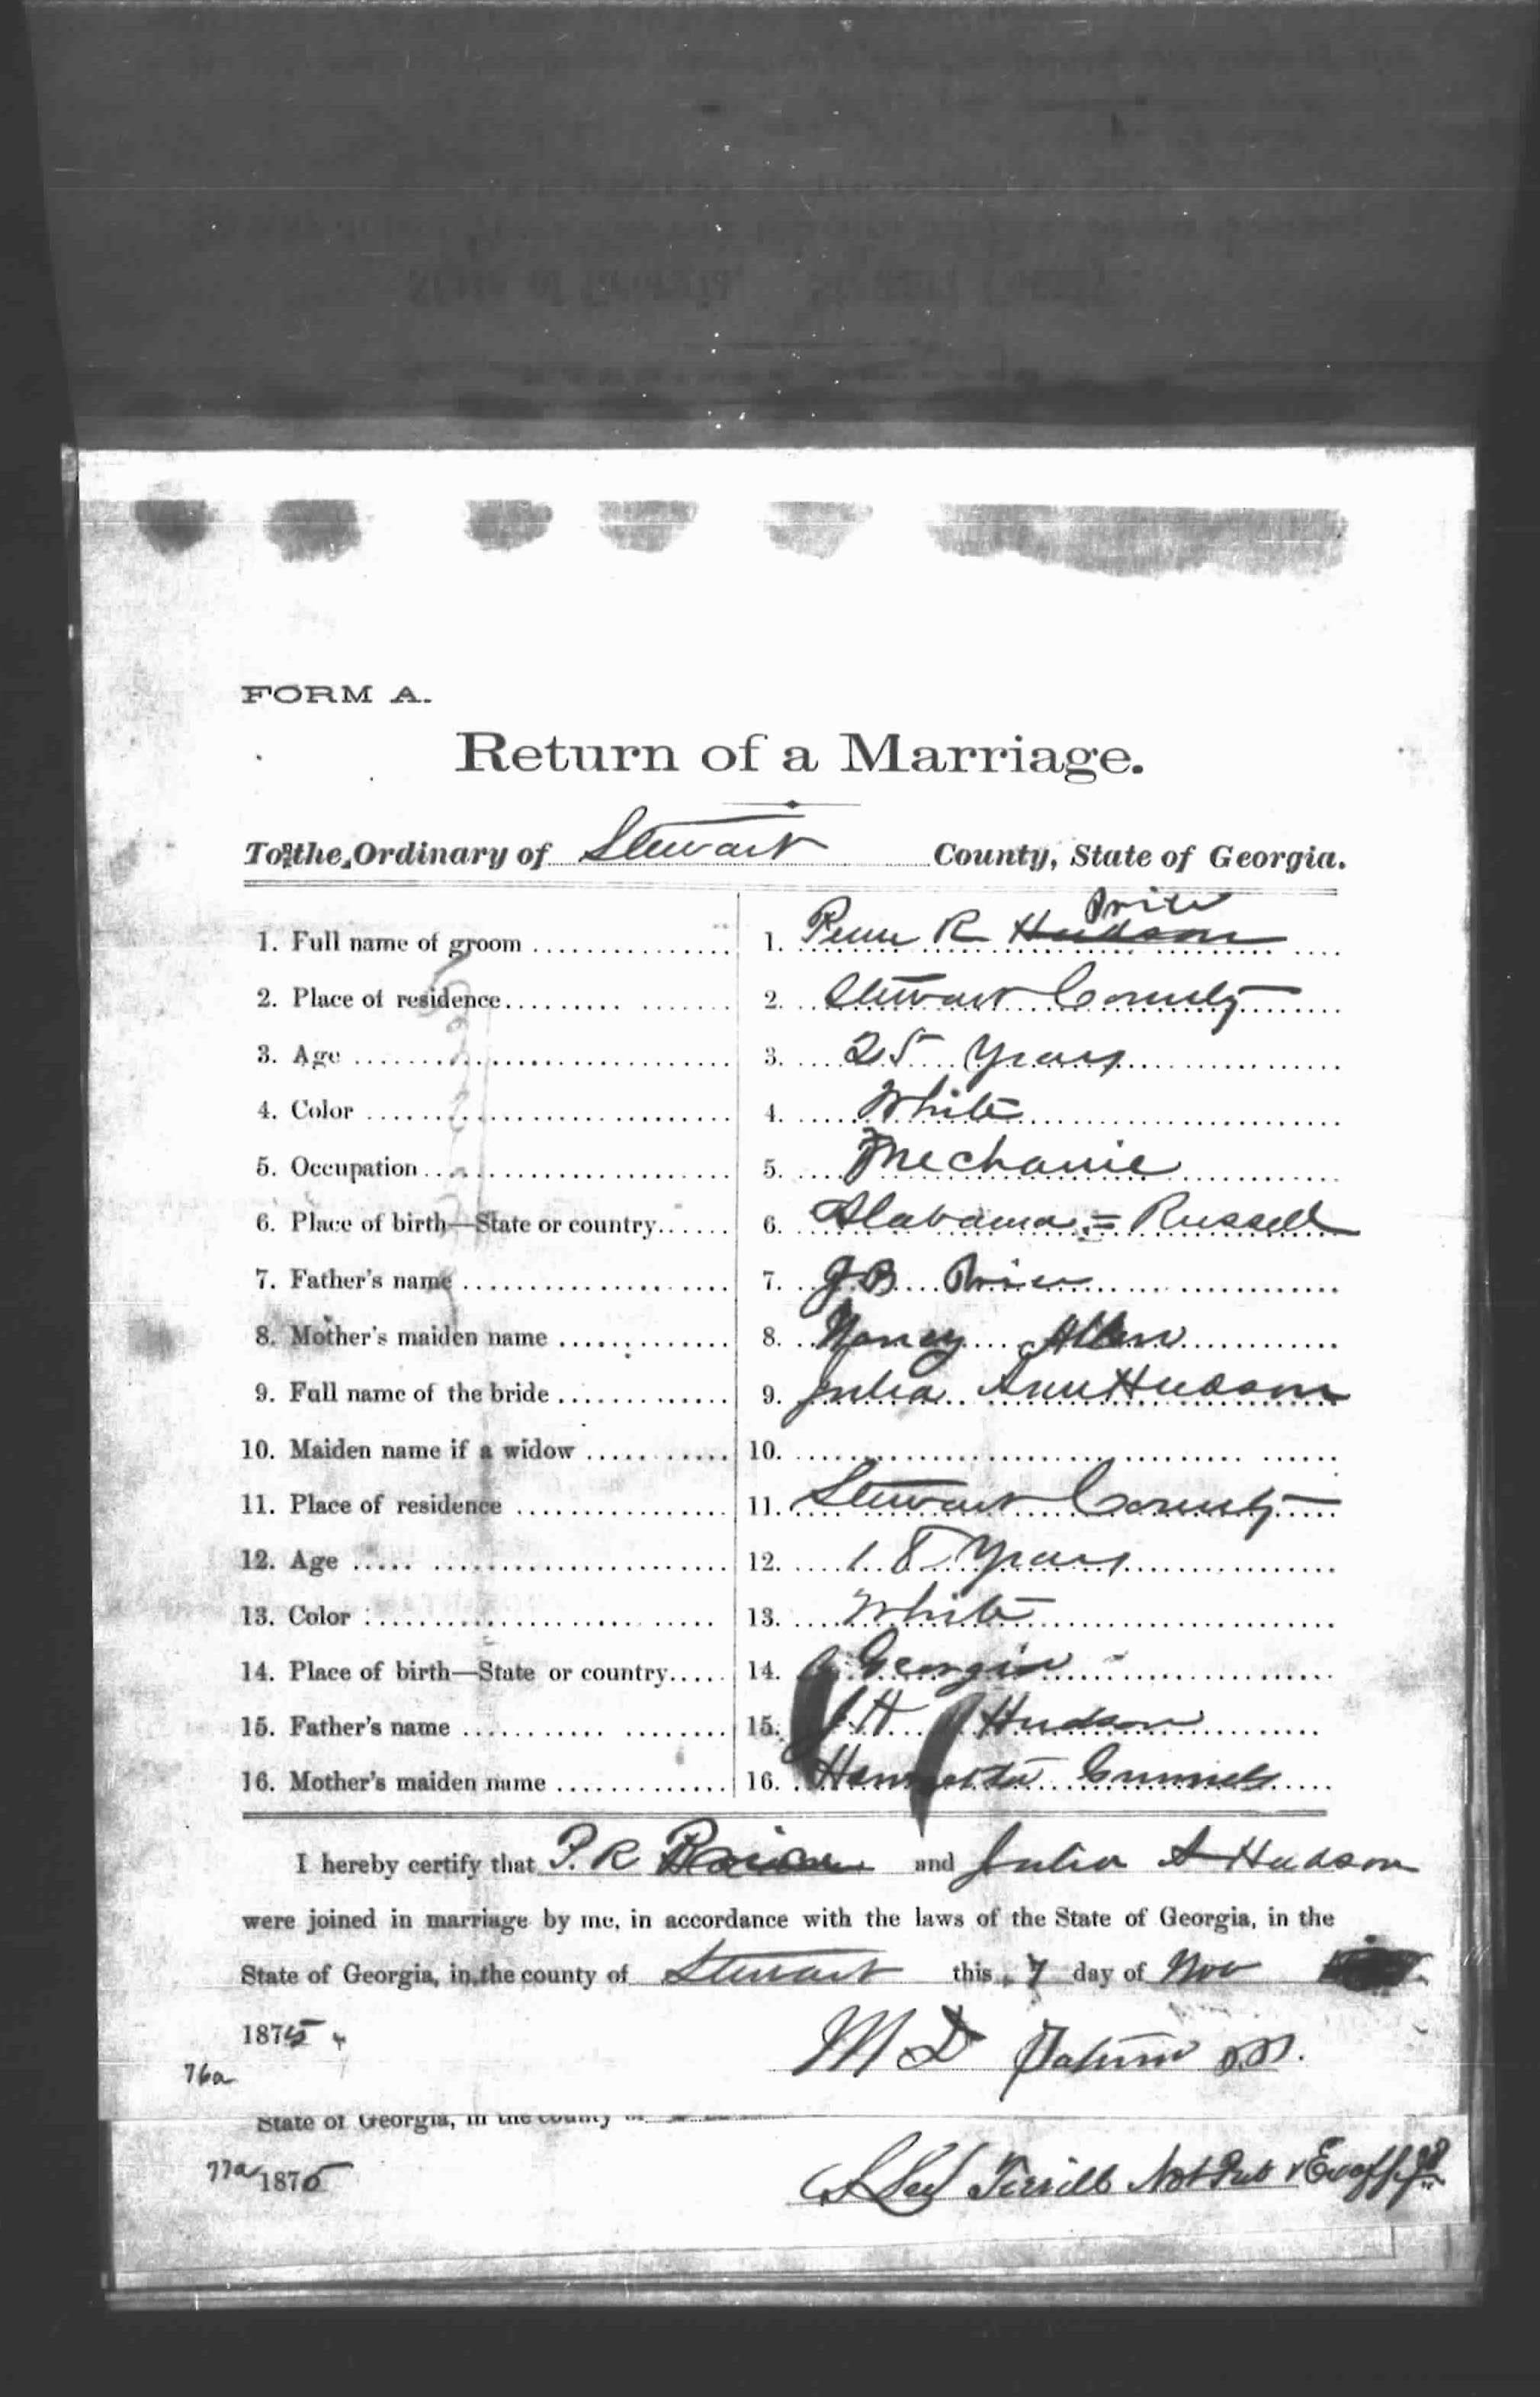 FORM A.
Return of a Marriage.
To the Ordinary of Stewart County, State of Georgia.
Price
1. Full name of groom 1. Penn R Hudson
2. Place of residence 2. Stewart County
3. Age 3. 25 Years
4. Color 4. White
5. Occupation 5. Mechanic
6. Place of birth—State or country 6. Alabama = Russell
7. Father's name 7. J B Price
8. Mother's maiden name 8. Nancy Allen
9. Full name of the bride 9. Julia Ann Hudson
10. Maiden name if a widow 10.
11. Place of residence 11. Stewart County
12. Age 12. 18 Years
13. Color 13. White
14. Place of birth—State or country 14. Georgia
15. Father's name 15. Hudson
16. Mother's maiden name 16. Henrietta
I hereby certify that P. R and Julia A Hudson
were joined in marriage by me, in accordance with the laws of the State of Georgia, in the
State of Georgia, in the county of Stewart this 7 day of Nov
1875
M D
76a
State of Georgia, in the county of
77a 1875
Terrill Not Pub & Exoff JP